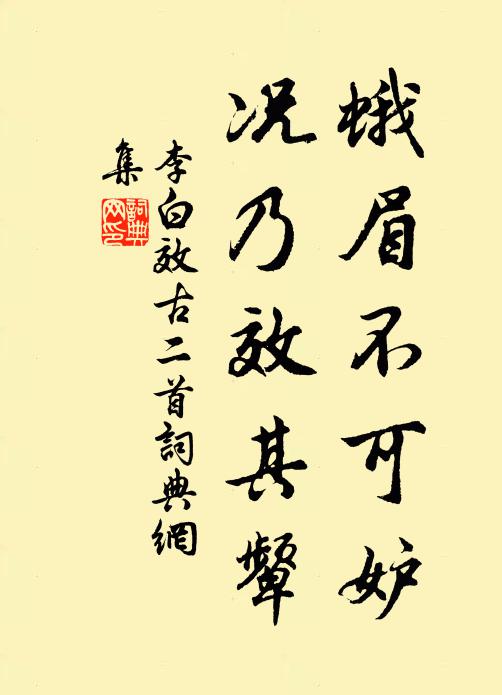 蛾眉不可妒
况乃效其颦
李白效古二首詞典網
集
詞典
网印